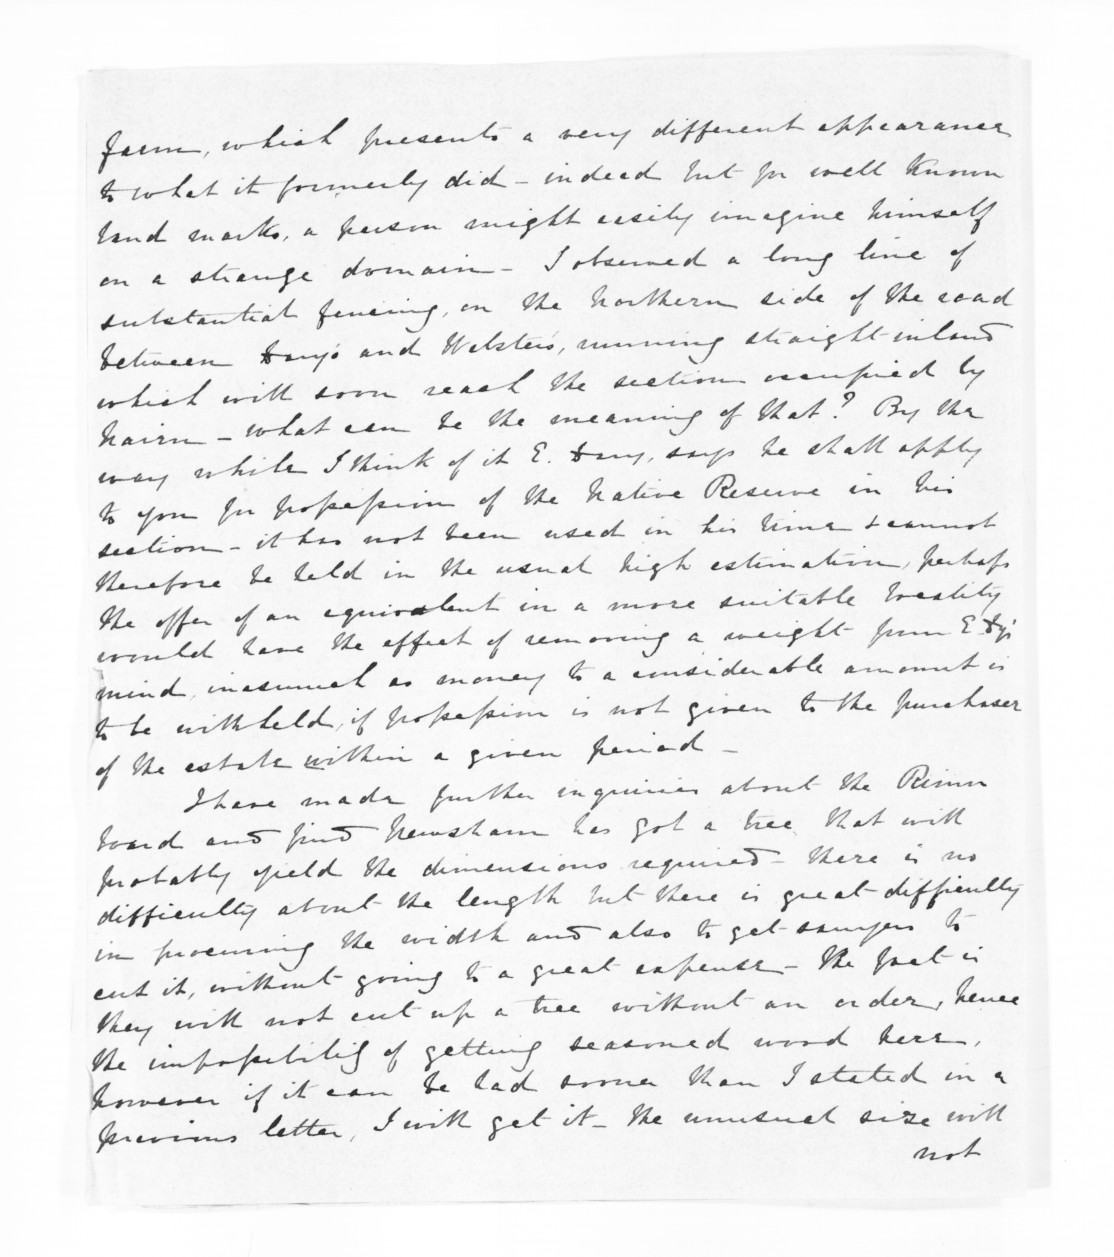 farm, which presents a very different appearance
to what it formerly did - indeed but for well known
land marks, a person might easily imagine himself
on a strange domain - I observed a long line of
substantial fencing, on the northern side of the road
between and Webster's, running straight inland
which will soon reach the section occupied by
Nairn - what can be the meaning of that? By the
way while I think of it E. says he shall apply
to you for possession of the Native Reserve in his
section - it has not been used in his time & cannot
therefore be held in the usual high estimation, perhaps
the offer of an equivalent in a more suitable locality
would have the effect of removing a weight from E
mind, inasmuch as money to a considerable amount is
to be withheld, if possession is not given to the purchaser
of the estate within a given period -
I have made further inquiries about the Rimu
board and find Newsham has got a tree that will
probably yield the dimensions required - there is no
difficulty about the length but there is great difficulty
in procuring the width and also to get sawyers to
cut it, without going to a great expense - The fact is
they will not cut up a tree without an order, hence
the impossibility of getting seasoned wood here,
however if it can be had sooner than I stated in a
previous letter, I will get it - the unusual size will
not